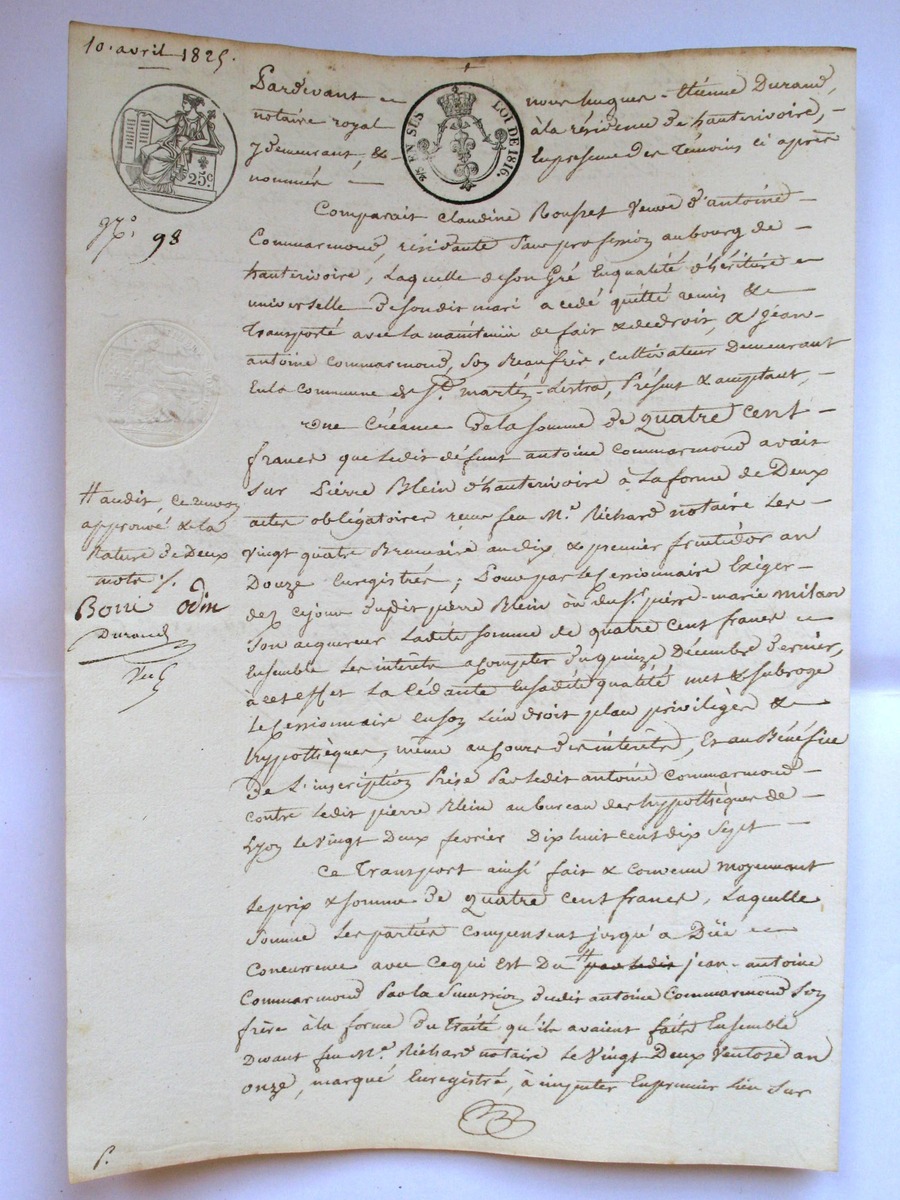 10. avril 1825.
Pardevant nous hugues-étienne Durand,
notaire royal à la résidence de hauterivoire,
y demeurant, & En présence des témoins ci après
nommés
25c.
EN SUS
LOI DE 1816.
98
Comparait claudine Rousset veuve d'antoine
Commarmond, résidante sans profession au bourg de
hauterivoire, Laquelle de son Gré En qualité d'héritière
universelle de son dit mari a cédé quitté remis &
Transporté avec la maintenüe de fait & de droit, A jean-
antoine commarmond, son Beaufrère, cultivateur Demeurant
En la commune de St. martin-Lestra, Présent & acceptant,
une Créance de la somme de quatre cent
francs que ledit défunt antoine commarmond avait
sur Pierre Blein d'hauterivoire à la forme de Deux
actes obligatoires reçus feu Me. Richard notaire les
vingt quatre Brumaire an dix & premier fructidor an
Douze Enregistrés; Pour par le Cessionnaire Exiger
dez ce jour dudit pierre Blein ou du sr. pierre-marie milan
son acquereur Ladite somme de quatre cent francs
Ensemble les intérêts acompter du quinze Décembre dernier,
à cet effet La Cédante En sadite qualité met & subroge
Le Cessionnaire en son Lieu droit place privilèges &
hypothèques, même au cours des intérêts, Et au Bénéfice
De L'inscription Prise Par ledit antoine commarmond
contre ledit pierre Blein au bureau des hypothèques de
Lyon le vingt Deux fevrier Dix huit cent dix sept
Ce Transport ainsi fait & convenu moyennant
Le prix & somme de quatre cent francs, Laquelle
somme Les parties compensent jusqu'a Düe
Concurrence avec ce qui est Du # par ledit jean-antoine
Commarmond Par la succession dudit antoine Commarmond son
frère à la forme du Traité qu'ils avaient faits Ensemble
Devant feu Me. Richard notaire Le vingt Deux ventose an
onze, marqué Enregistré, à imputer En premier Lieu sur
# audit, ce renvoi
approuvé & la
rature de Deux
mots
Borri Odin
Durand